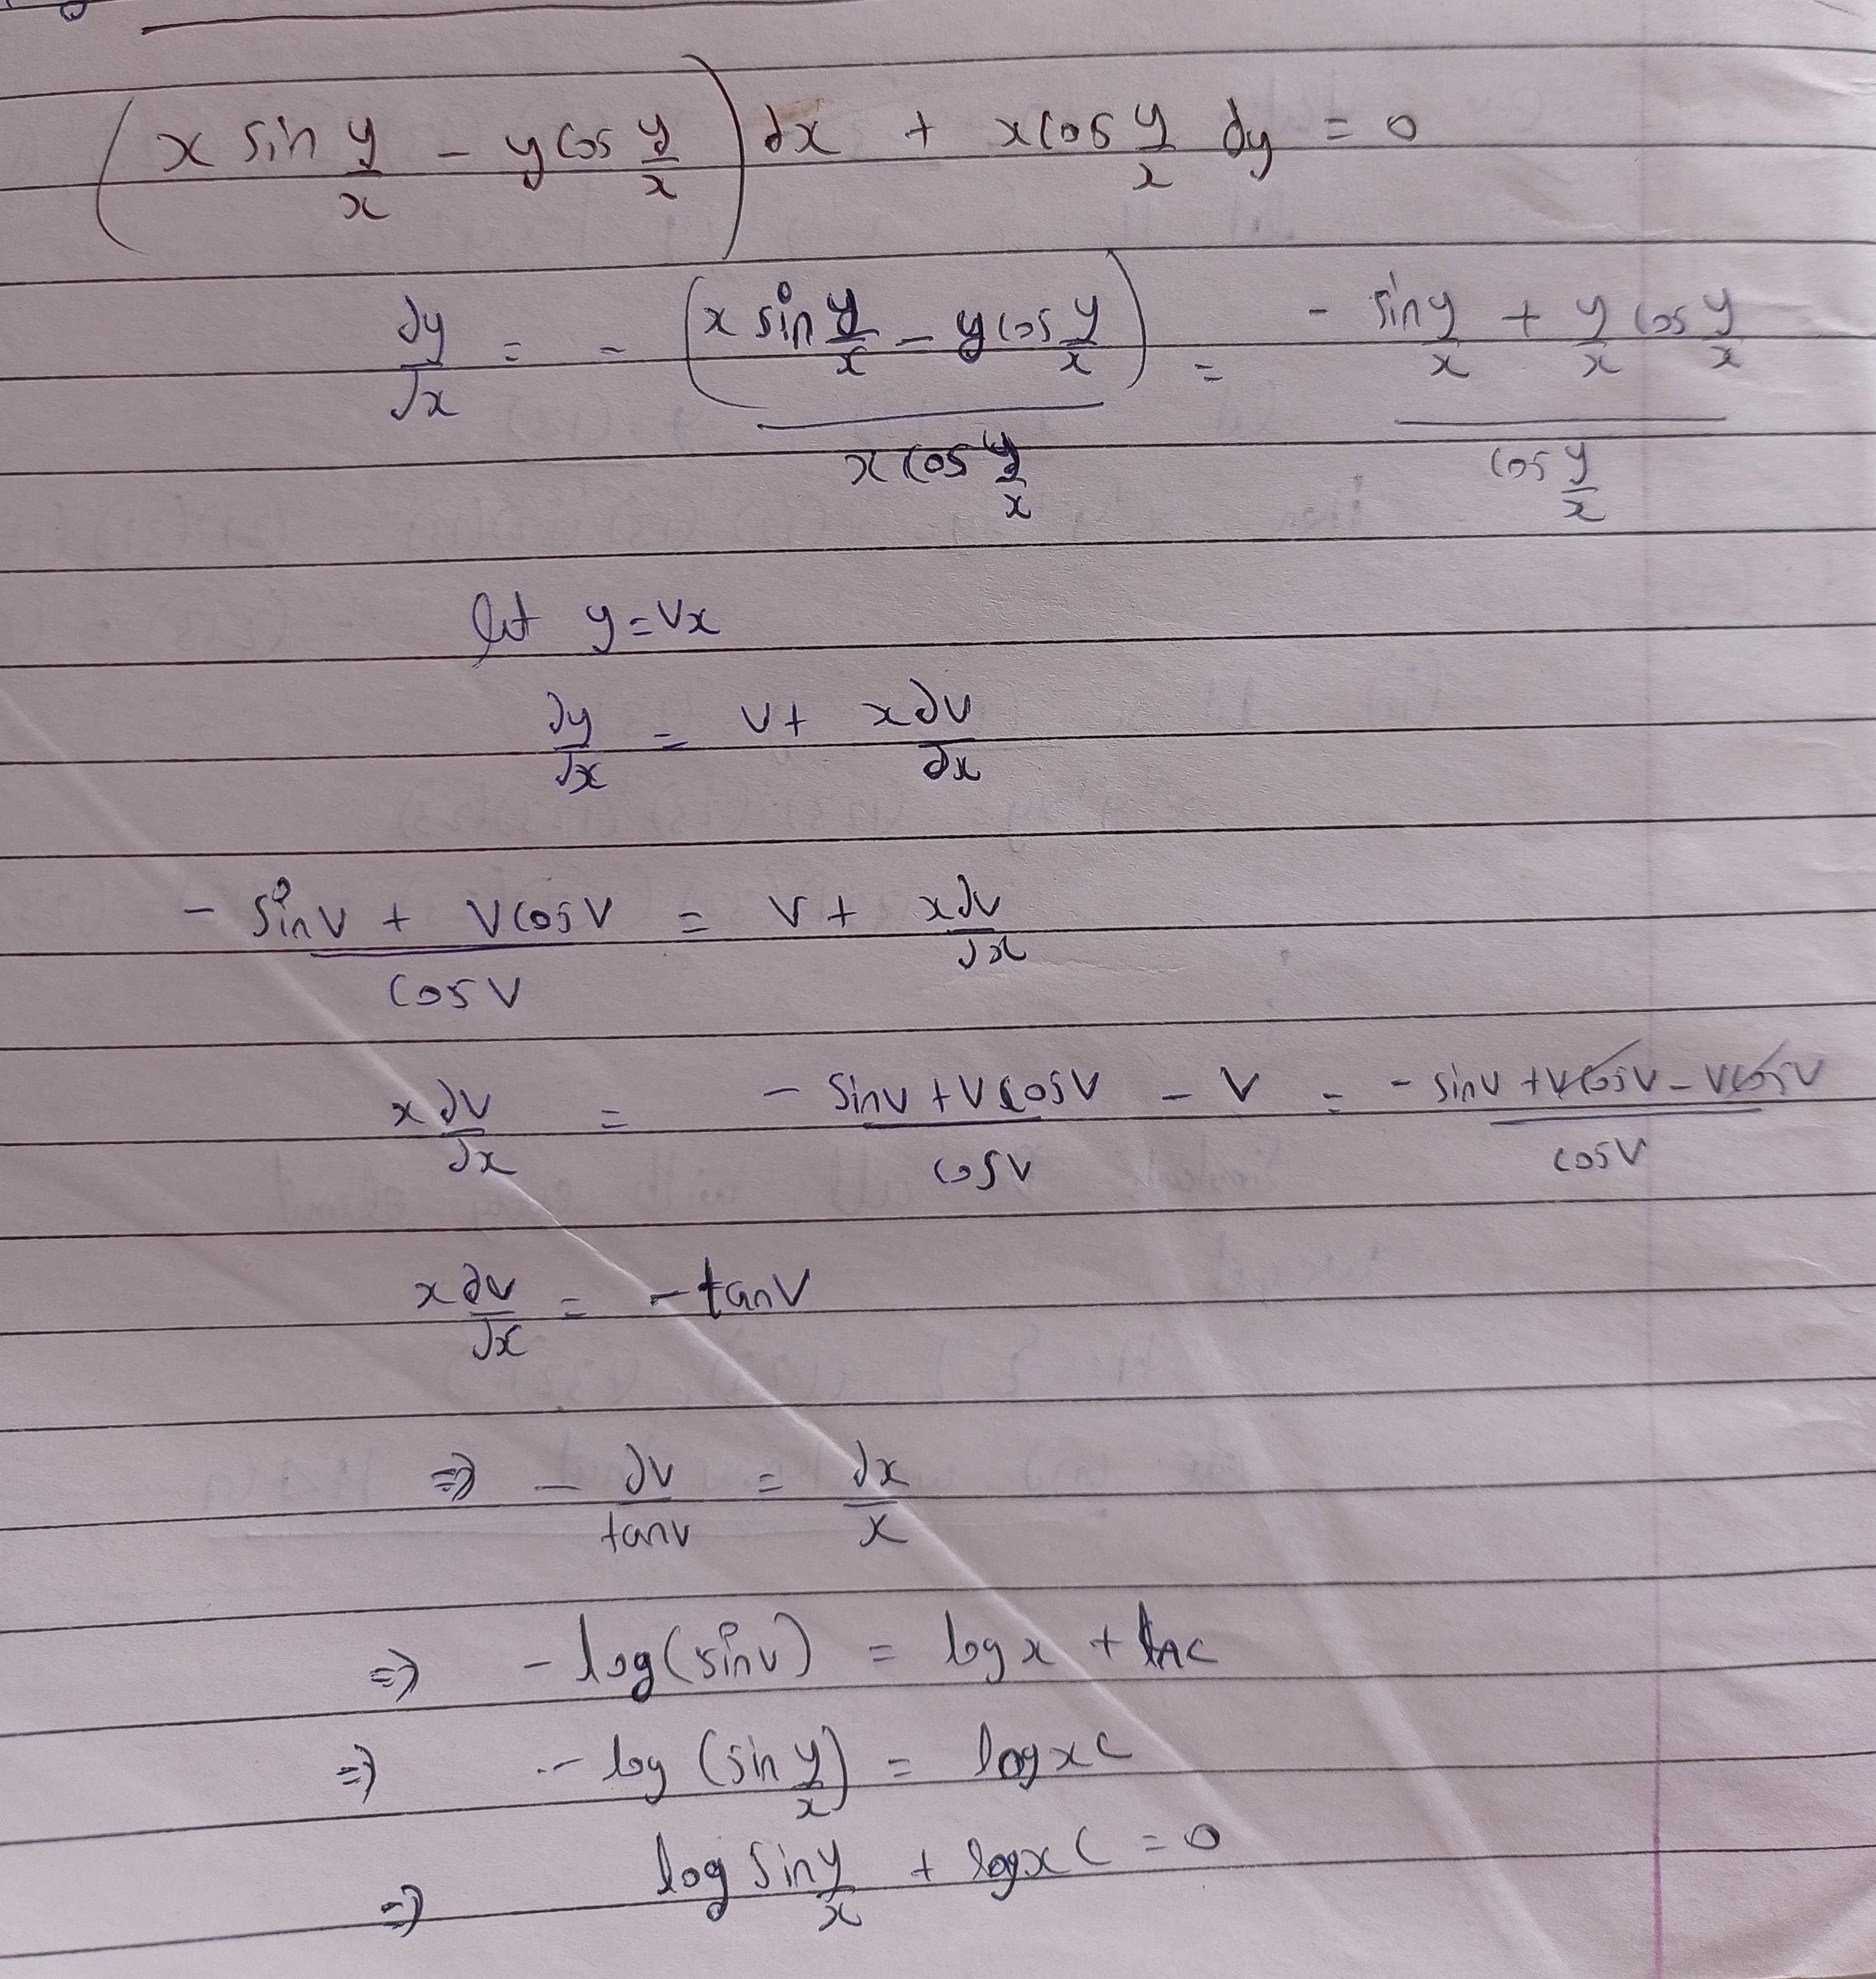 (x sin y/x - y cos y/x) dx + x cos y/x dy = 0
dy/dx = - (x sin y/x - y cos y/x) / x cos y/x = - sin y/x + y/x cos y/x / cos y/x
let y = vx
dy/dx = v + x dv/dx
- sin v + v cos v / cos v = v + x dv/dx
x dv/dx = - sin v + v cos v / cos v - v = - sin v + v cos v - v cos v / cos v
x dv/dx = - tan v
⇒ - dv/tan v = dx/x
⇒ - log(sin v) = log x + ln c
⇒ - log (sin y/x) = log x c
⇒ log sin y/x + log x c = 0